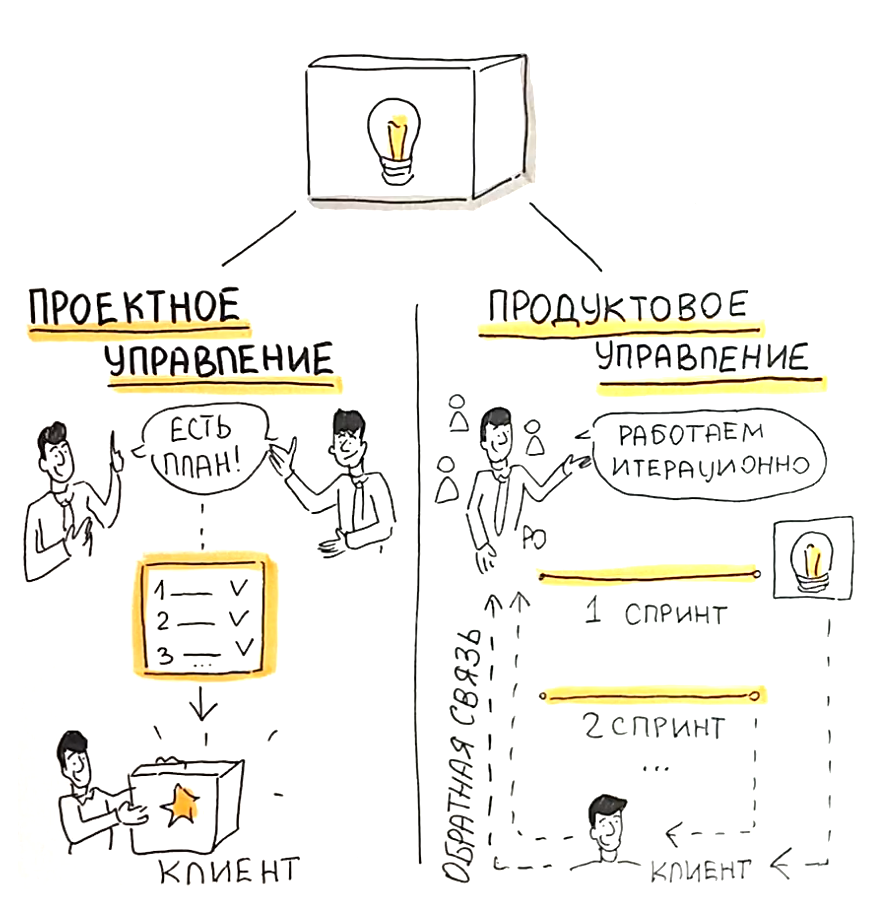 ПРОЕКТНОЕ
УПРАВЛЕНИЕ
ЕСТЬ
ПЛАН!
1 — ✓
2 — ✓
3 — ✓
...
КЛИЕНТ
ПРОДУКТОВОЕ
УПРАВЛЕНИЕ
РАБОТАЕМ
ИТЕРАЦИОННО
PO
1 СПРИНТ
2 СПРИНТ
...
ОБРАТНАЯ СВЯЗЬ
КЛИЕНТ